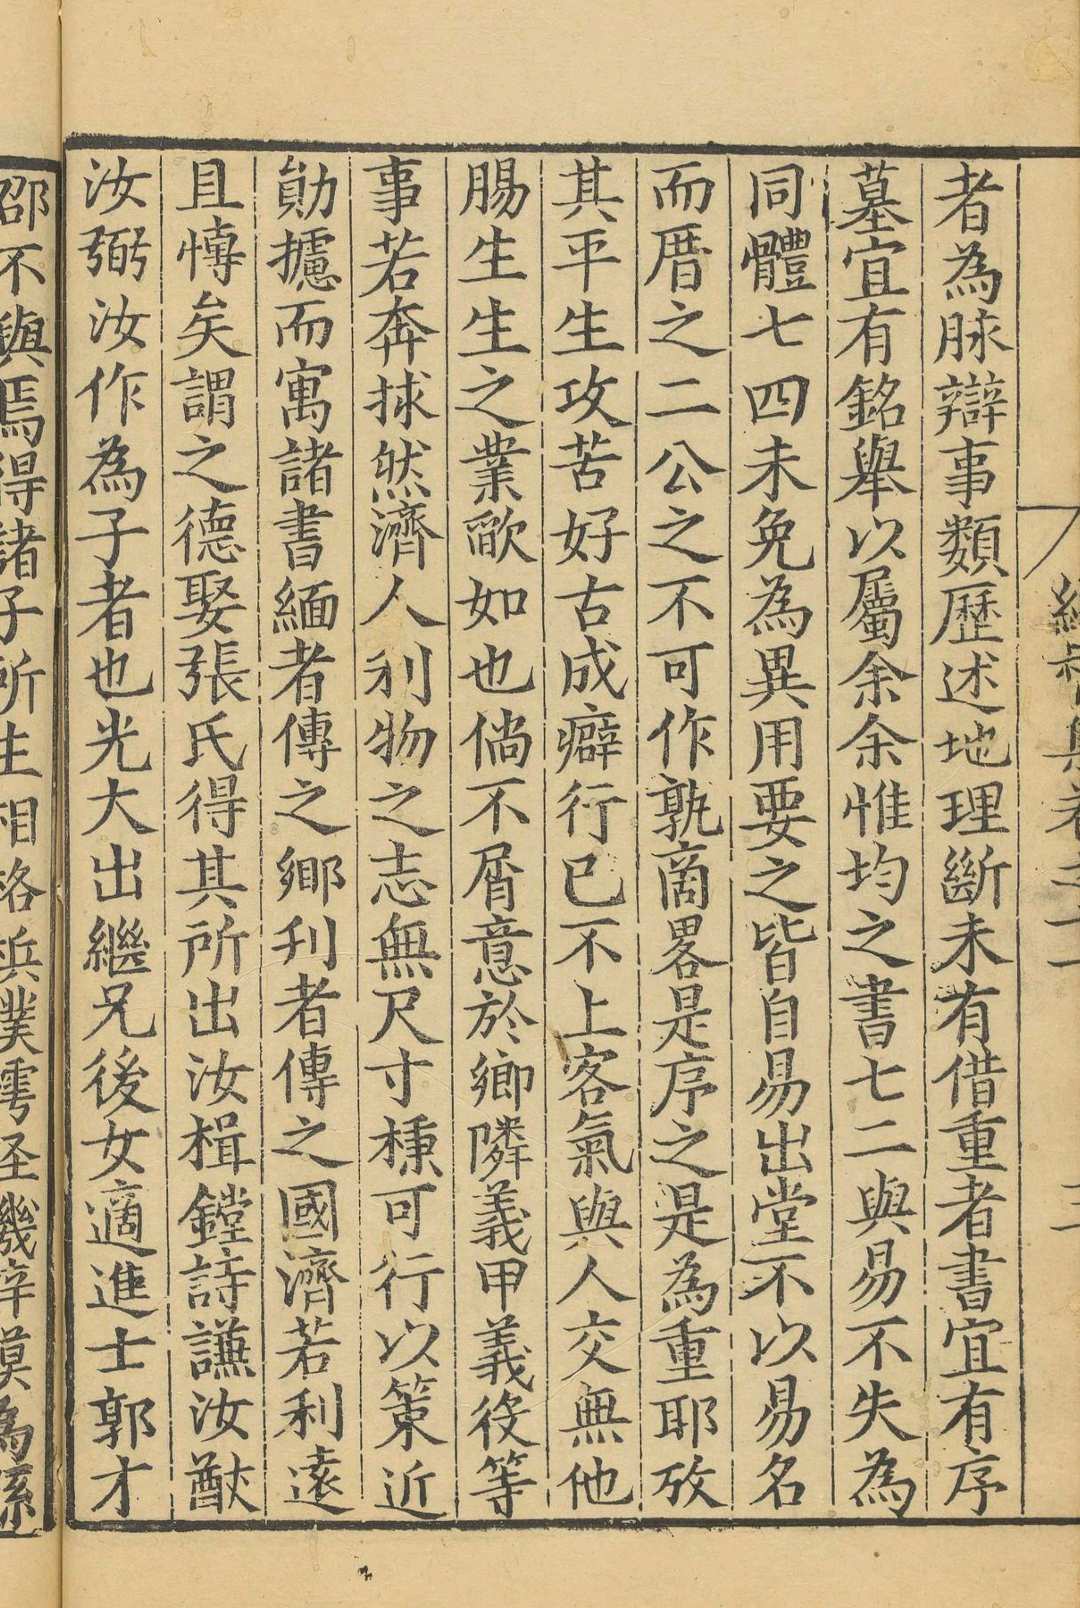 者為脉辯事類歷述地理斷未有借重者書宜有序
墓宜有銘舉以屬余余惟均之書七二與易不失為
同體七四未免為異用要之皆自易出堂不以易名
而厝之二公之不可作孰啇畧是序之是為重耶攷
其平生攻苦好古成癖行已不上客氣與人交無他
腸生生之業歉如也倘不屑意於鄉隣義甲義役等
事若奔捄然濟人利物之志無尺寸𣠽可行以策近
勛攄而寓諸書緬者傳之鄉刋者傳之國濟若利遠
且愽矣謂之德娶張氏得其所出汝楫鏜詩謙汝猷
汝弼汝作為子者也光大出繼兄後女適進士郭才
邵不與焉得諸子所生相格兵